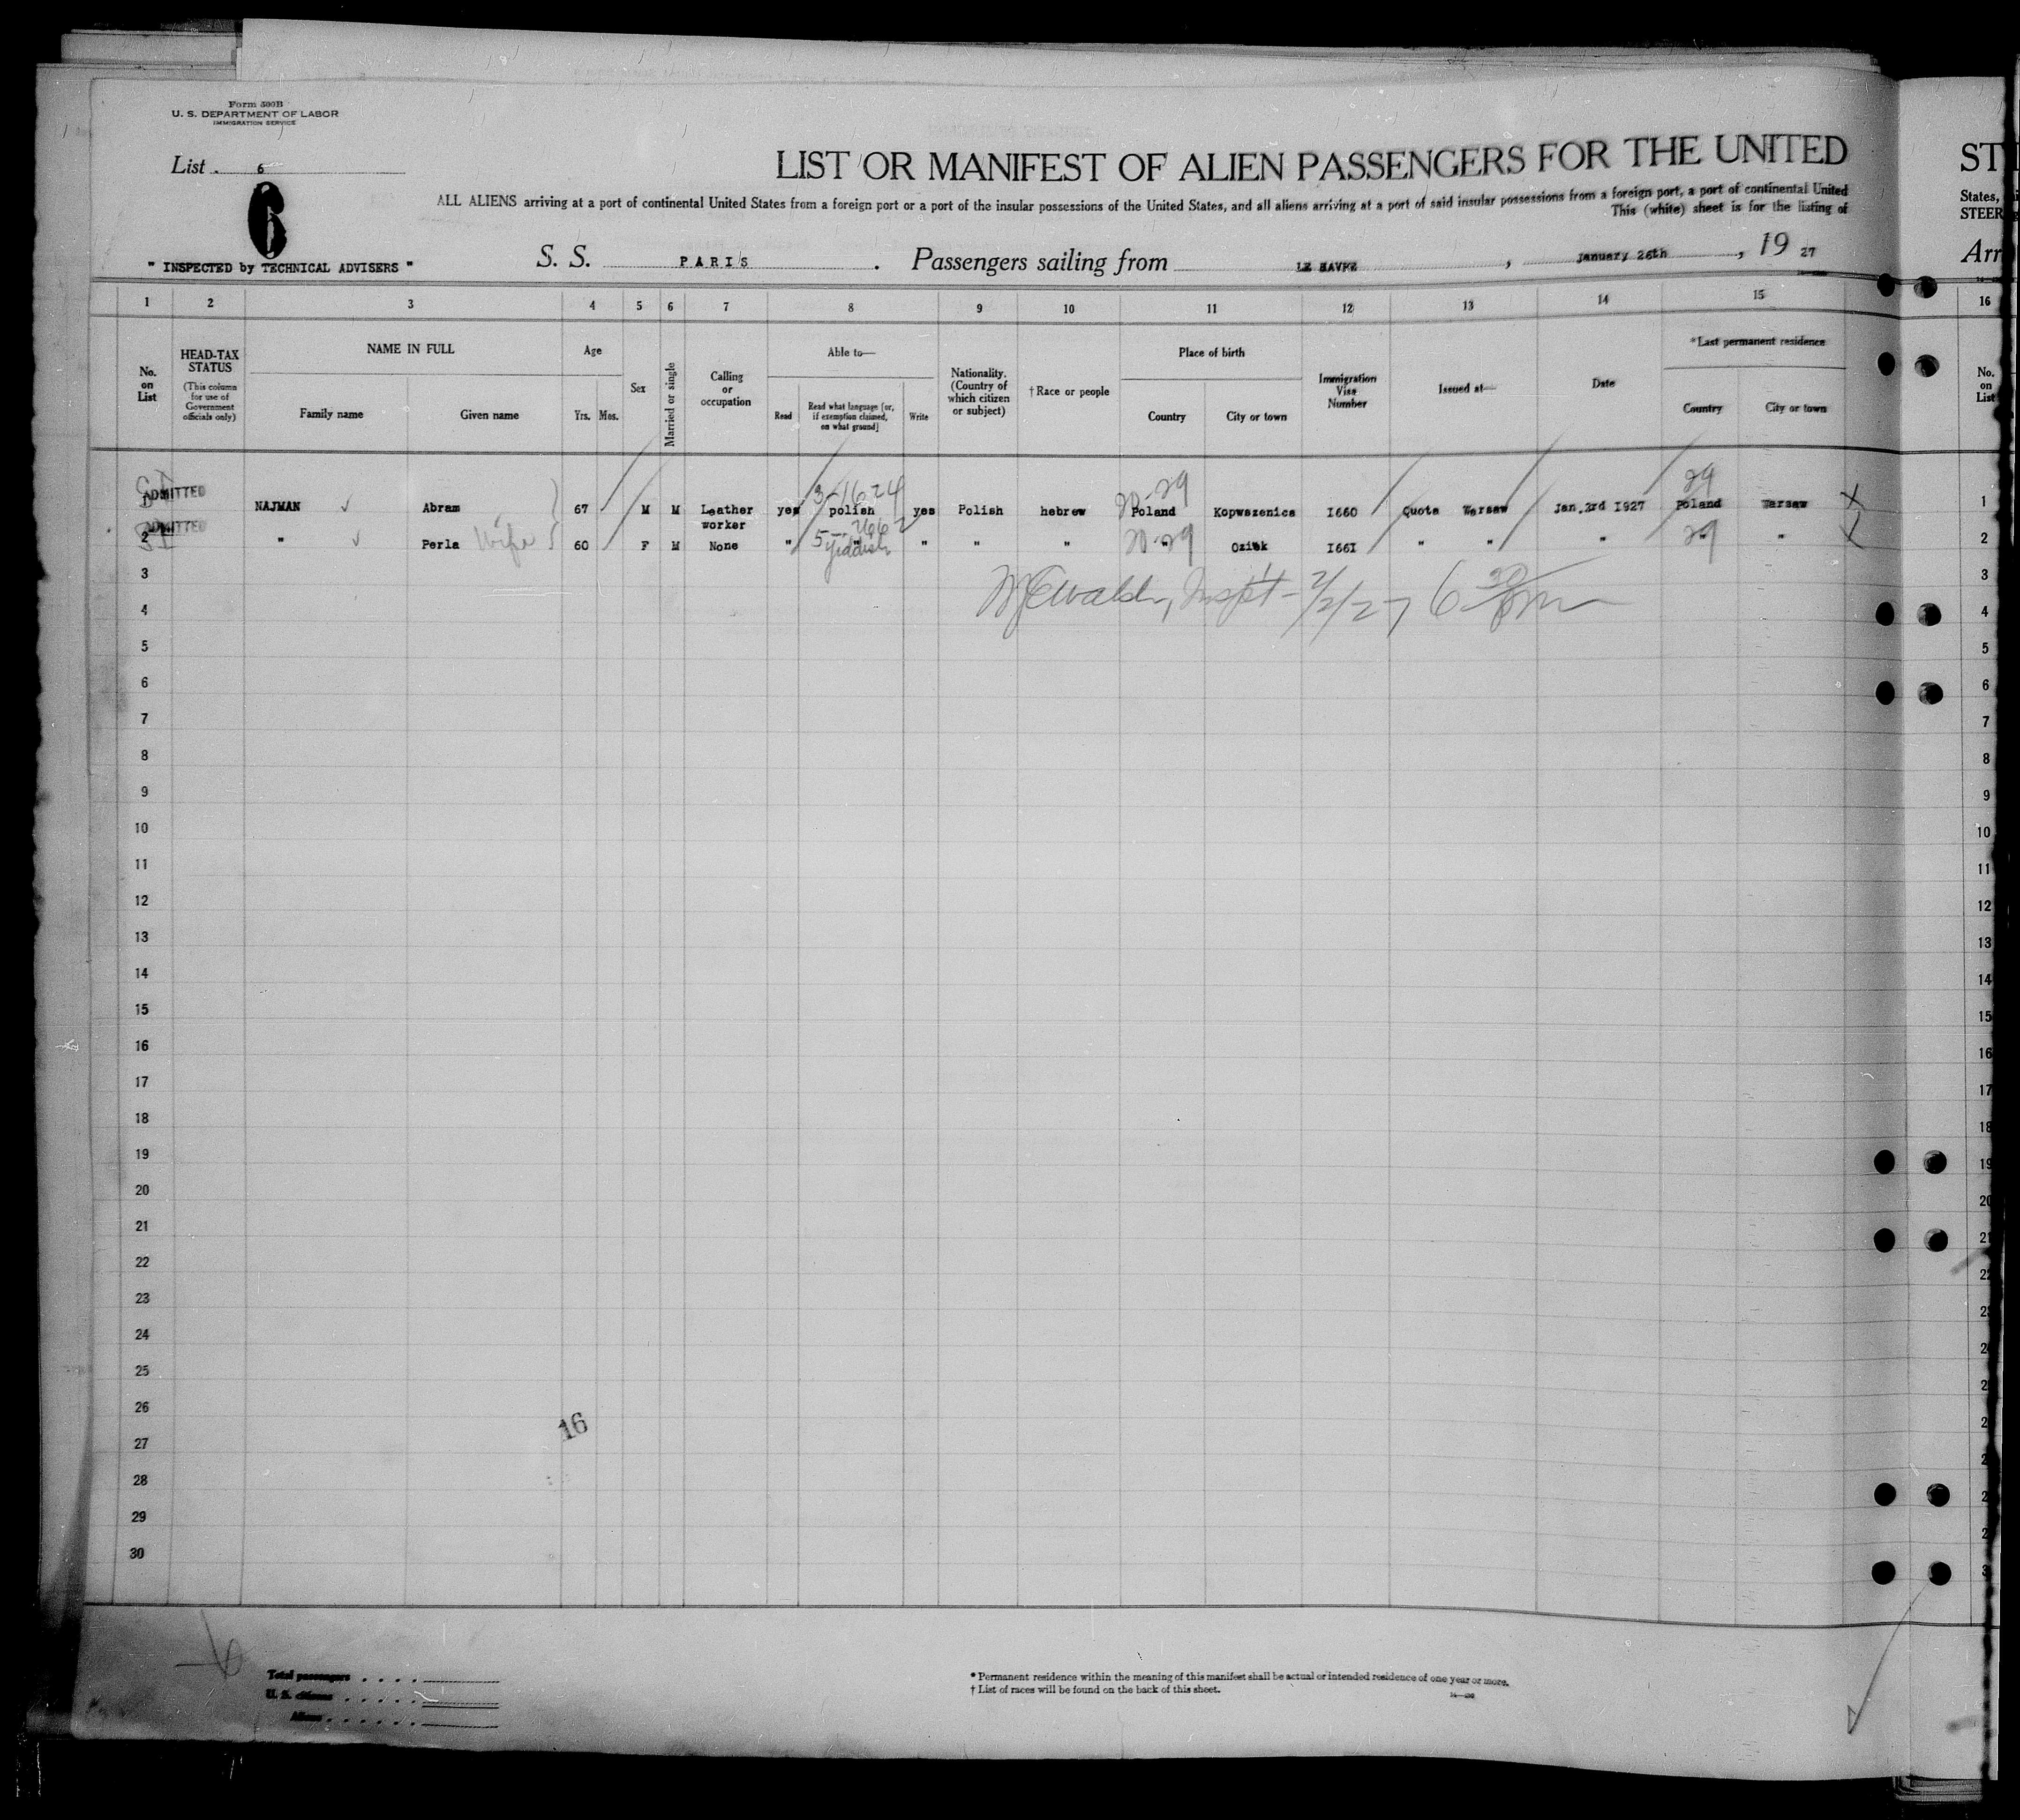 Form 500B
U. S. DEPARTMENT OF LABOR
IMMIGRATION SERVICE
List 6
6
LIST OR MANIFEST OF ALIEN PASSENGERS FOR THE UNITED
ALL ALIENS arriving at a port of continental United States from a foreign port or a port of the insular possessions of the United States, and all aliens arriving at a port of said insular possessions from a foreign port, a port of continental United
This (white) sheet is for the listing of
" INSPECTED by TECHNICAL ADVISERS "
S. S. PARIS . Passengers sailing from LE HAVRE , January 26th , 19 27
1 2 3 4 5 6 7 8 9 10 11 12 13 14 15
No. on List
HEAD-TAX STATUS
(This column for use of Government officials only)
NAME IN FULL
Family name Given name
Age
Yrs. Mos.
Sex
Married or single
Calling or occupation
Able to—
Read
Read what language [or, if exemption claimed, on what ground]
Write
Nationality. (Country of which citizen or subject)
† Race or people
Place of birth
Country City or town
Immigration Visa Number
Issued at—
Date
*Last permanent residence
Country City or town
SI ADMITTED 1 NAJMAN Abram 67 M M Leather worker yes polish yes Polish hebrew Poland Kopwszenica I660 Quota Warsaw Jan.3rd I927 Poland Warsaw
3-1624 20-29 29
SI ADMITTED 2 " Perla Wife 60 F M None " " Yiddish " " " " Oziek I66I " " " " "
20-29 29
Inspt - 2/2/27 6 30 pm
3
4
5
6
7
8
9
10
11
12
13
14
15
16
17
18
19
20
21
22
23
24
25
26
27
28
29
30
16
Total passengers
U. S. citizens
Aliens
* Permanent residence within the meaning of this manifest shall be actual or intended residence of one year or more.
† List of races will be found on the back of this sheet.
ST
States,
STEER
Arr
16
No. on List
1
2
3
4
5
6
7
8
9
10
11
12
13
14
15
16
17
18
19
20
21
22